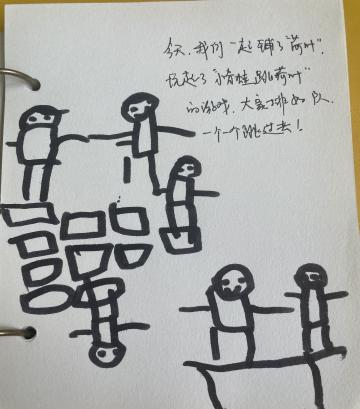 今天,我们一起铺了"荷叶",
玩起了"小青蛙跳荷叶"
的游戏,大家排好队,
一个一个跳过去!